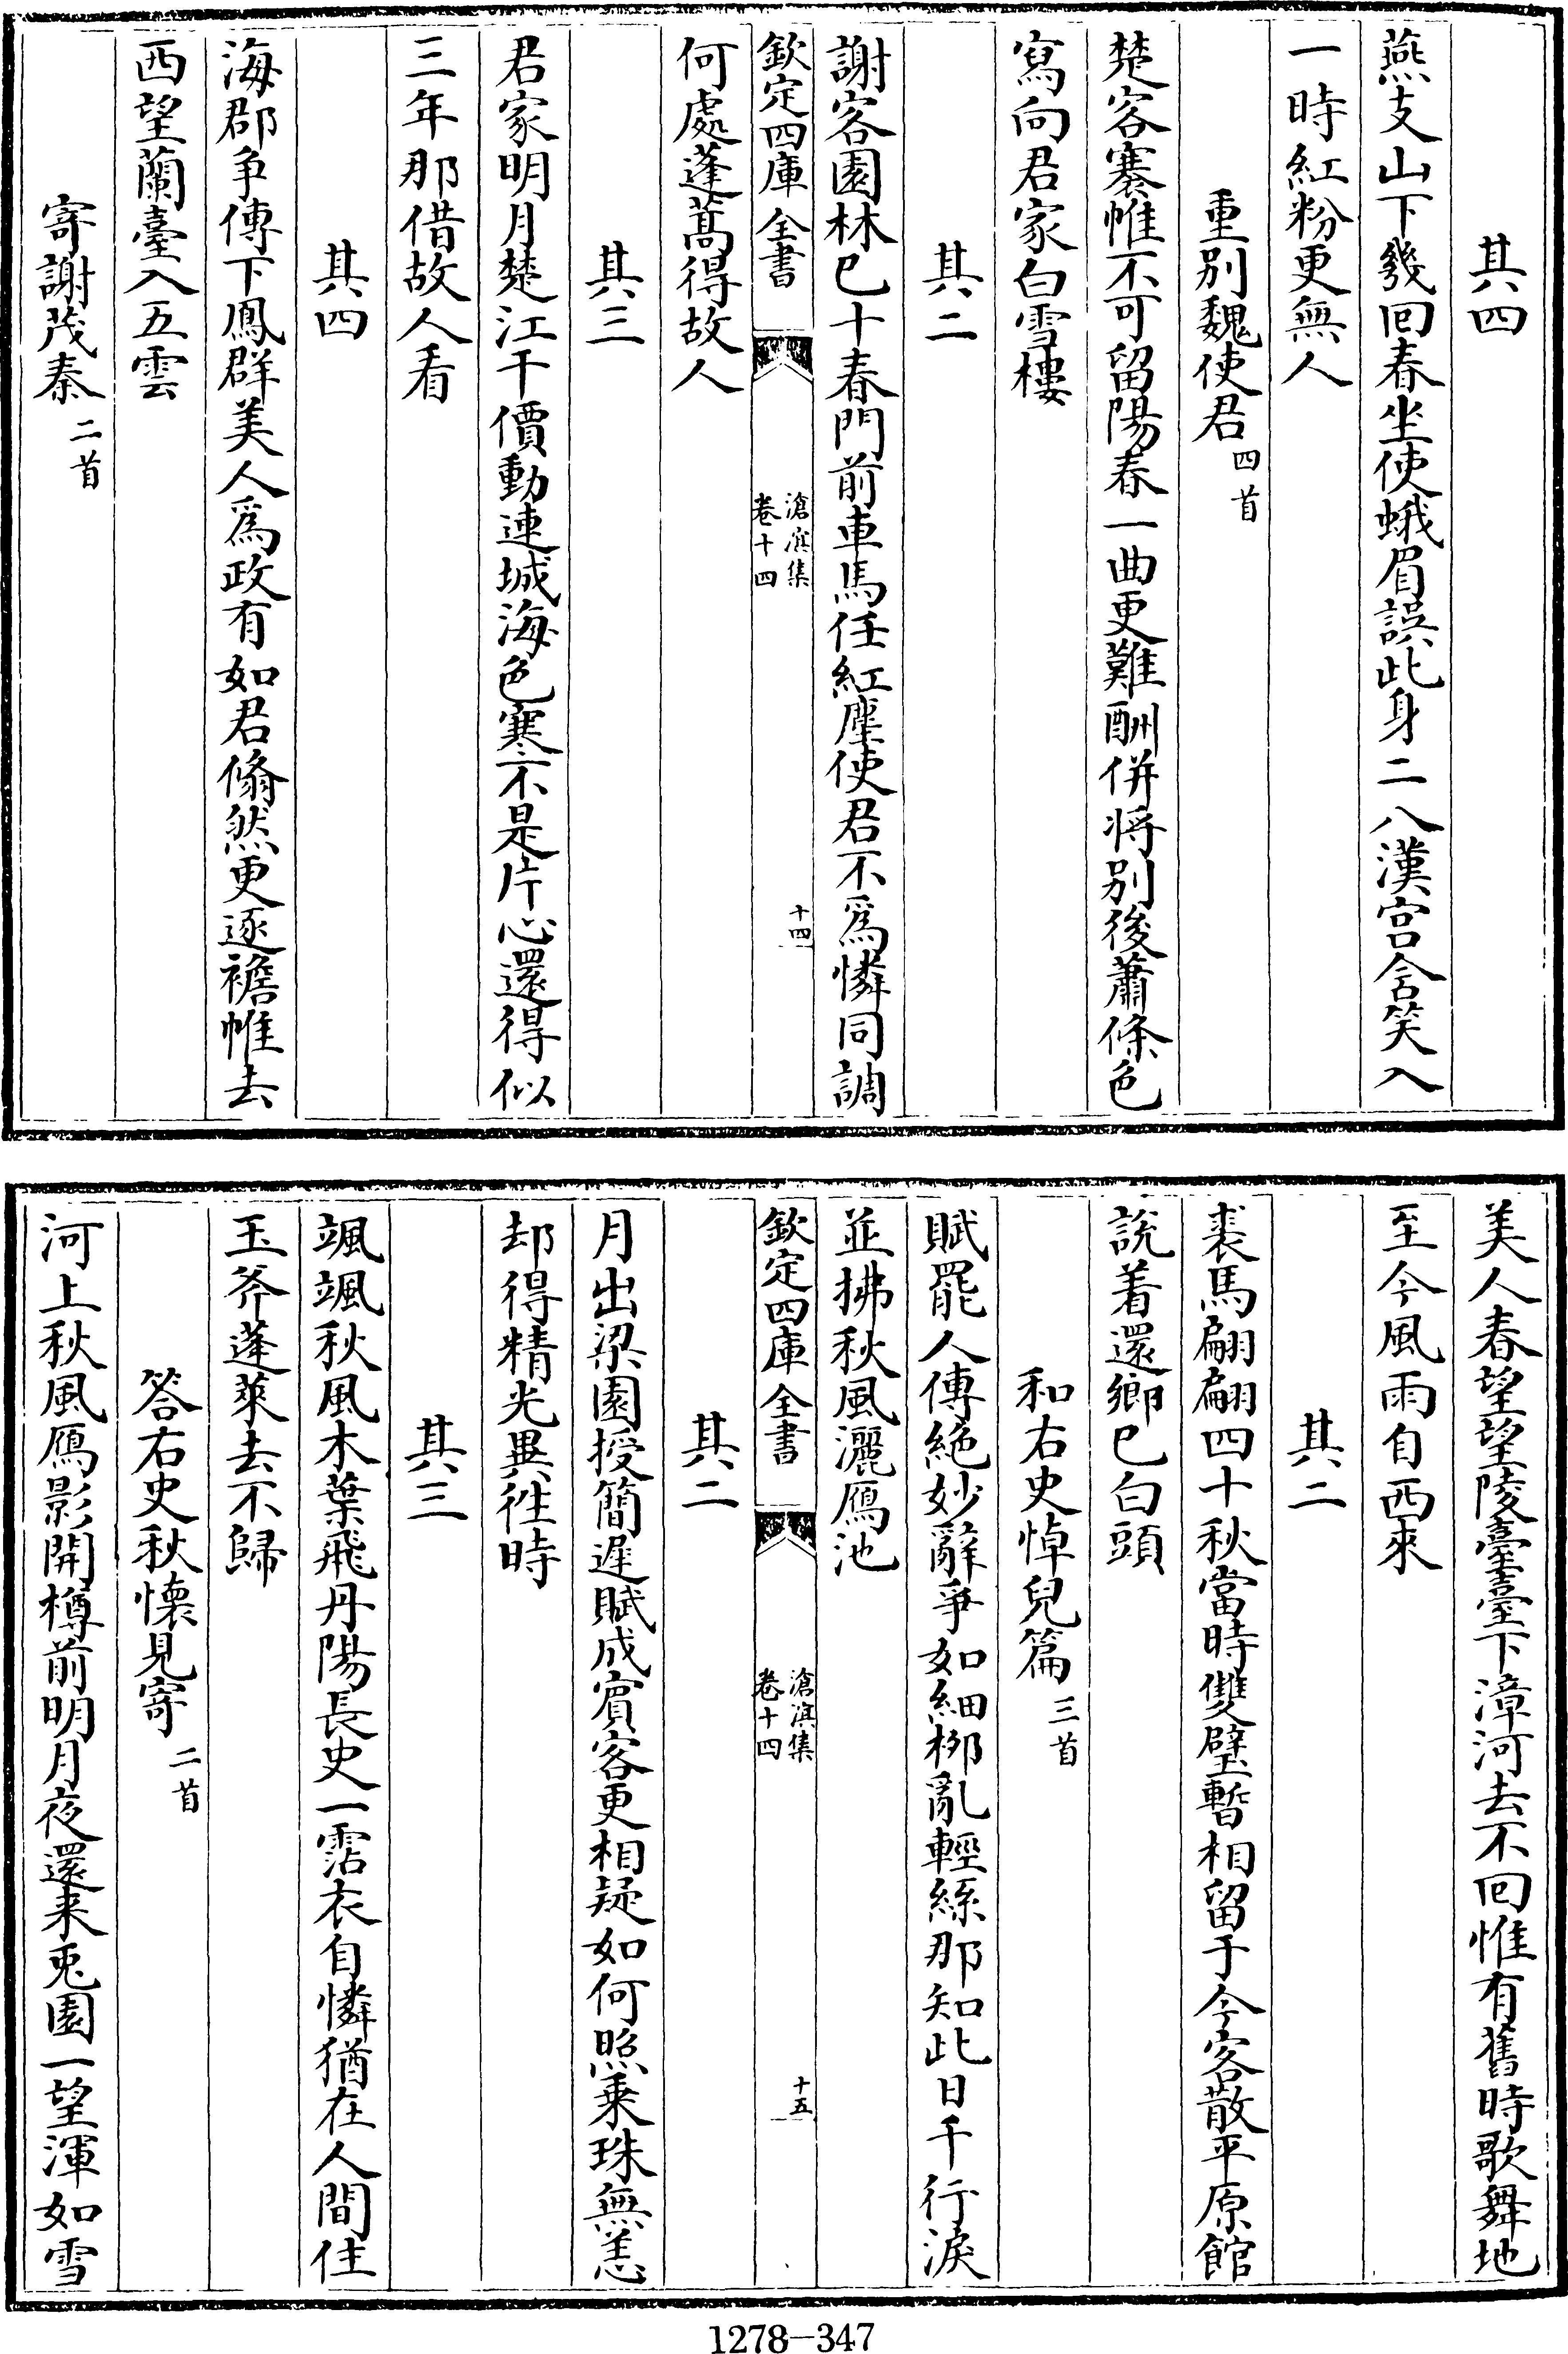 其四
燕支山下幾回春坐使蛾眉誤此身二八漢宫含笑入
一時紅粉更無人
重别魏使君四首
楚客褰帷不可留陽春一曲更難酬併將别後蕭條色
寫向君家白雪樓
其二
謝客園林已十春門前車馬任紅塵使君不爲憐同調
欽定四庫全書
滄溟集
卷十四
十四
何處蓬蒿得故人
其三
君家明月楚江干價動連城海色寒不是片心還得似
三年那借故人看
其四
海郡争傳下鳳群美人爲政有如君翛然更逐襜帷去
西望蘭臺入五雲
寄謝茂秦二首
美人春望望陵臺臺下漳河去不回惟有舊時歌舞地
至今風雨自西來
其二
裘馬翩翩四十秋當時雙璧暫相留于今客散平原館
說着還鄉已白頭
和右史悼兒篇三首
賦罷人傳絶妙辭爭如細柳亂輕絲那知此日千行淚
並拂秋風灑鴈池
欽定四庫全書
滄溟集
卷十四
十五
其二
月出梁園授簡遲賦成賓客更相疑如何照乗珠無恙
却得精光異徃時
其三
颯颯秋風木葉飛丹陽長史一霑衣自憐猶在人間住
玉斧蓬萊去不歸
答右史秋懐見寄二首
河上秋風鴈影開樽前明月夜還来兎園一望渾如雪
1278-347